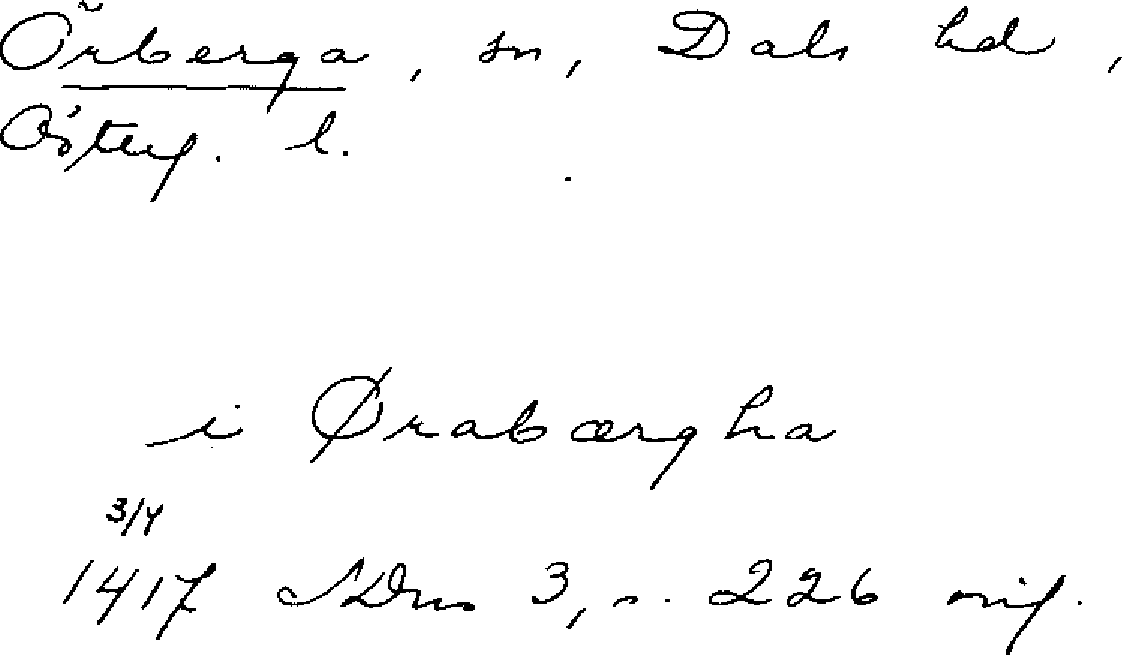 Örberga, sn, Dals hd,
Österg. l.
i Ørabærgha
3/4
1417 SDns 3, s. 226 orig.